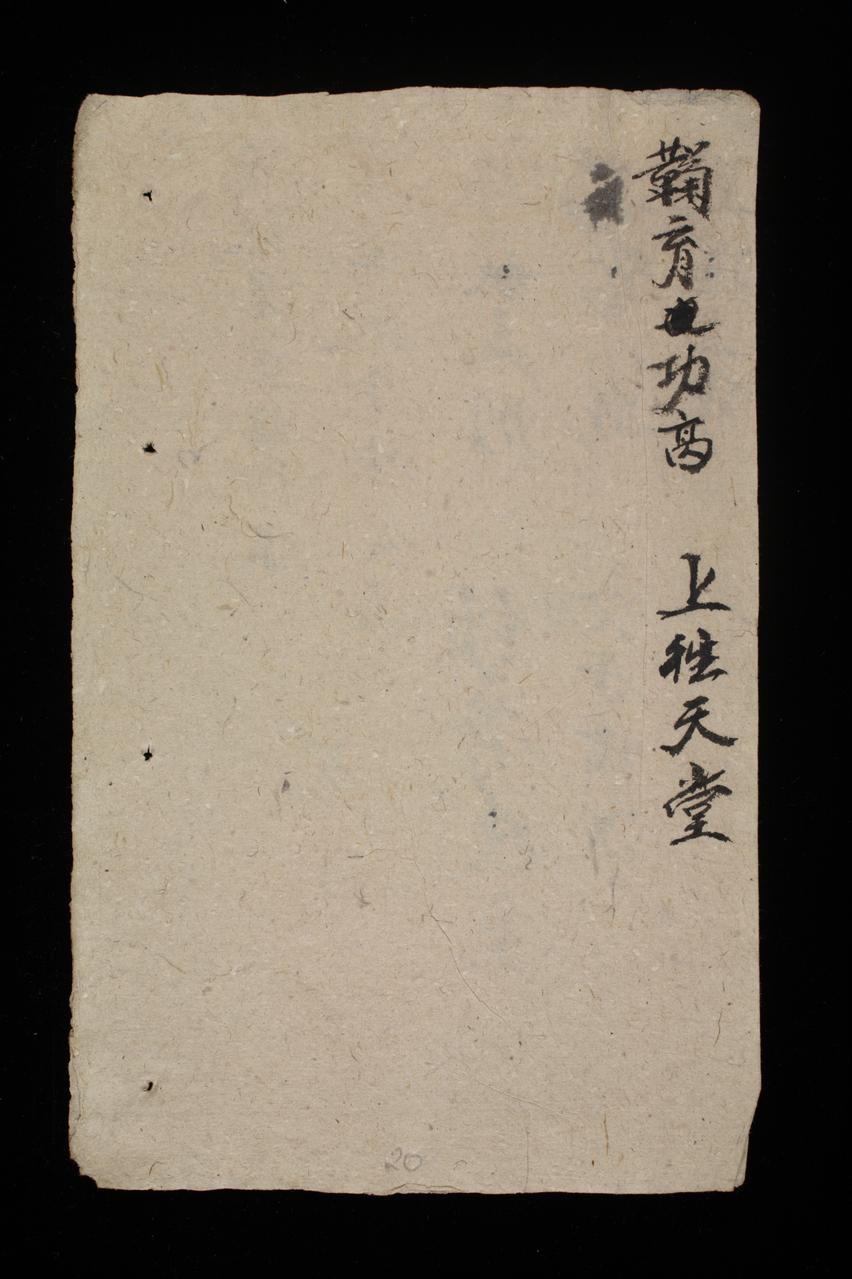 鞠育之功高 上徃天堂
20